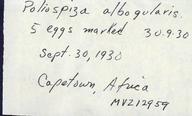 Poliospiza albogularis.
5 eggs marked 30.9.30
Sept. 30, 1930
Capetown, Africa
MVZ 12959